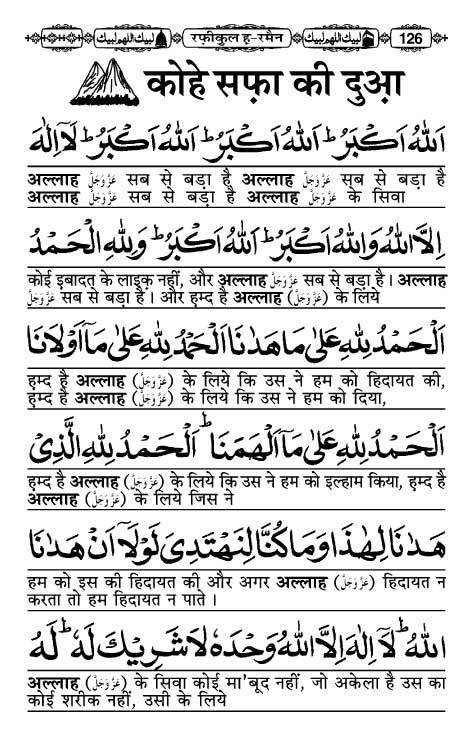 لبيك اللهم لبيك रफ़ीकुल ह-रमैन لبيك اللهم لبيك 126
कोहे सफ़ा की दुआ़
اَللهُ اَكْبَرُ ؕ اَللهُ اَكْبَرُ ؕ اَللهُ اَكْبَرُ ؕ اَللهُ اَكْبَرُ ؕ لَاۤ اِلٰهَ
अल्लाह عَزَّوَجَلَّ सब से बड़ा है अल्लाह عَزَّوَجَلَّ सब से बड़ा है
अल्लाह عَزَّوَجَلَّ सब से बड़ा है अल्लाह عَزَّوَجَلَّ के सिवा
اِلَّا اللهُ وَاللهُ اَكْبَرُ ؕ اَللهُ اَكْبَرُ ؕ وَلِلّٰهِ الْحَمْدُ
कोई इबादत के लाइक़ नहीं, और अल्लाह عَزَّوَجَلَّ सब से बड़ा है। अल्लाह
عَزَّوَجَلَّ सब से बड़ा है। और ह़म्द है अल्लाह (عَزَّوَجَلَّ) के लिये
اَلْحَمْدُ لِلّٰهِ عَلٰى مَا هَدٰىنَا اَلْحَمْدُ لِلّٰهِ عَلٰى مَاۤ اَوْلَانَا
ह़म्द है अल्लाह (عَزَّوَجَلَّ) के लिये कि उस ने हम को हिदायत की,
ह़म्द है अल्लाह (عَزَّوَجَلَّ) के लिये कि उस ने हम को दिया,
اَلْحَمْدُ لِلّٰهِ عَلٰى مَاۤ اَلْهَمَنَا ؕ اَلْحَمْدُ لِلّٰهِ الَّذِىْ
ह़म्द है अल्लाह (عَزَّوَجَلَّ) के लिये कि उस ने हम को इल्हाम किया, ह़म्द है
अल्लाह (عَزَّوَجَلَّ) के लिये जिस ने
هَدٰىنَا لِهٰذَا وَمَا كُنَّا لِنَهْتَدِىَ لَوْلَاۤ اَنْ هَدٰىنَا
हम को इस की हिदायत की और अगर अल्लाह (عَزَّوَجَلَّ) हिदायत न
करता तो हम हिदायत न पाते।
اللهُ ؕ لَاۤ اِلٰهَ اِلَّا اللهُ وَحْدَهٗ لَا شَرِيْكَ لَهٗ ؕ لَهُ
अल्लाह (عَزَّوَجَلَّ) के सिवा कोई मा'बूद नहीं, जो अकेला है उस का
कोई शरीक नहीं, उसी के लिये